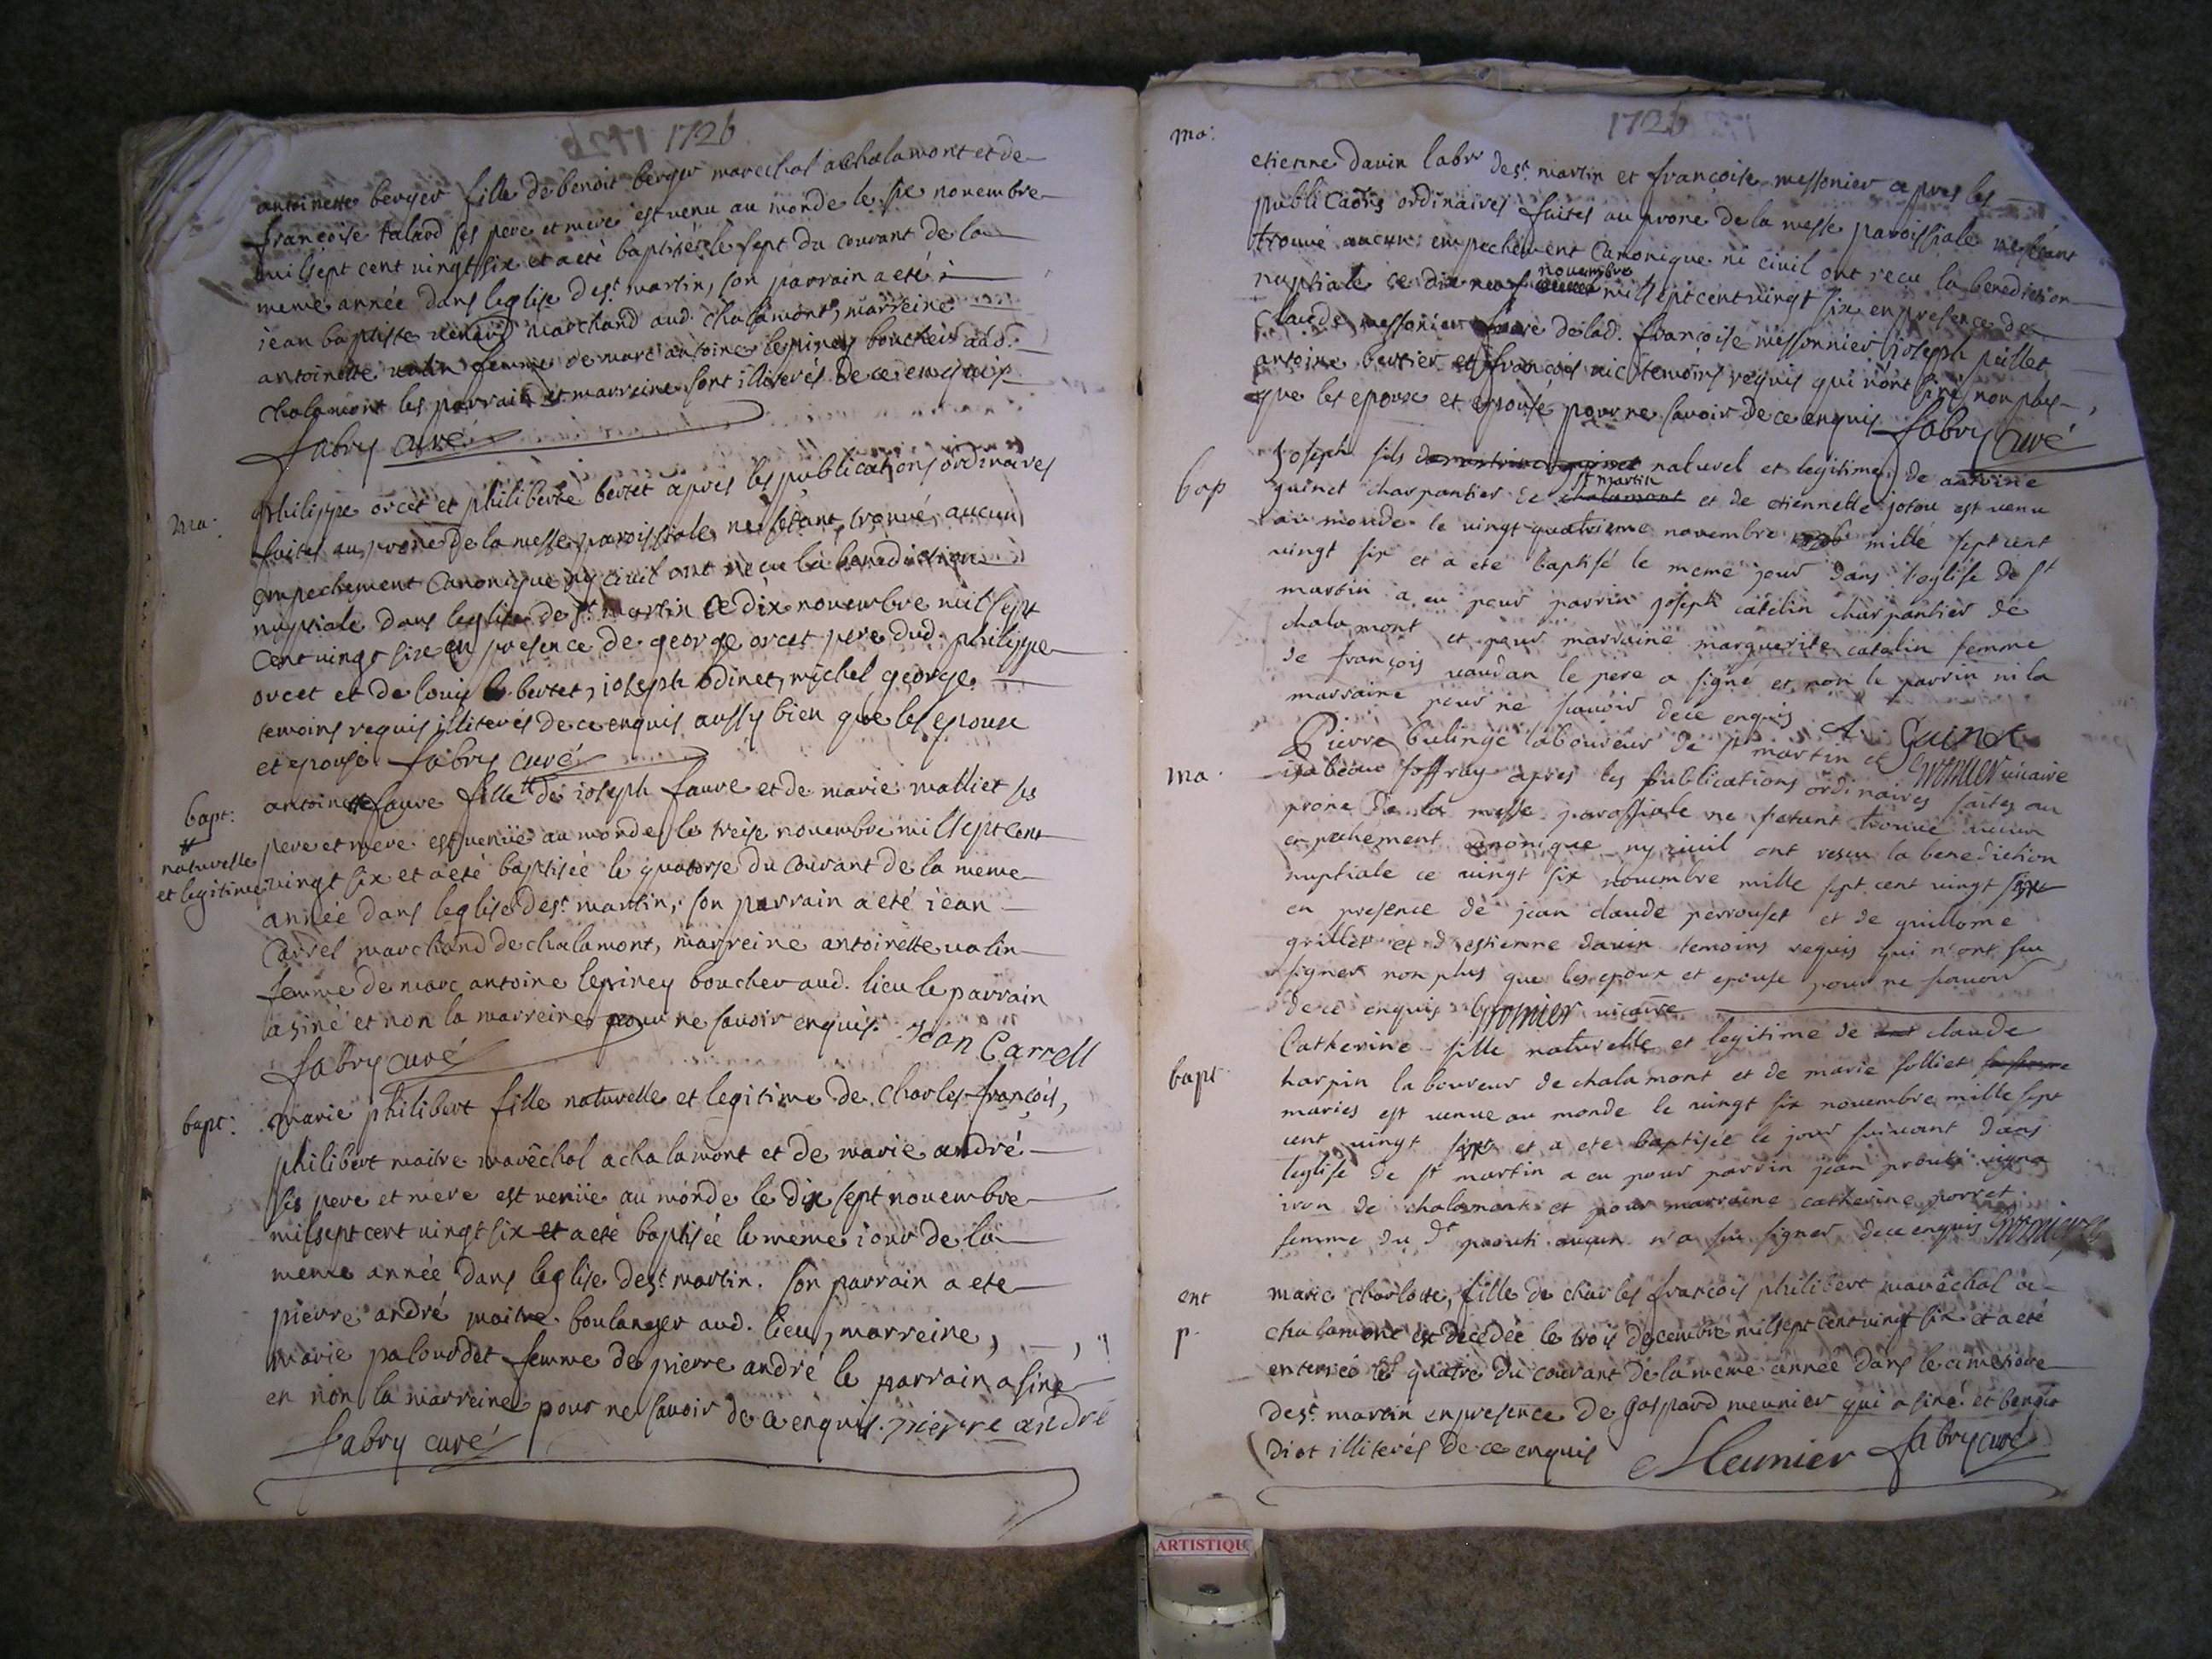 1726
antoinette berger fille de benoit berger marechal a chalamont et de
françoise talard ses pere et mere est venu au monde le six novembre
mil sept cent vingt six et a eté baptisée le sept du courant de la
meme année dans leglise de st martin, son parrain a eté
jean baptiste marchand aud. chalamont, marreine
antoinette valin femme de marc antoine lepiney boucher aud.
chalamont les parrain et marreine sont illiterés de ce enquis
fabry curé
ma:
philippe orcet et philiberte bertet apres les publications ordinaires
faites au prone de la messe paroissiale, ne sétant trouvé aucun
empechement canonique ny civil ont reçu la benediction
nuptiale dans leglise de st martin ce dix novembre mil sept
cent vingt six en presence de george orcet pere dud. philippe
orcet et de louis bertet, ioseph odinet, michel george
temoins requis illiterés de ce enquis aussy bien que les epoux
et epouse fabry curé
bapt:
naturelle
et legitime
antoinette faure fille de ioseph faure et de marie malliet ses
pere et mere est venüe au monde le treise novembre mil sept cent
vingt six et a eté baptisée le quatorse du courant de la meme
année dans leglise de st martin, son parrain a eté iean
Carrel marchand de chalamont, marreine antoinette valin
femme de marc antoine lepiney boucher aud. lieu le parrain
a siné et non la marreine pour ne savoir enquis. Jean Carrell
fabry curé
bapt:
marie philibert fille naturelle et legitime de charles françois,
philibert maitre maréchal a chalamont et de marie andré
ses pere et mere est venüe au monde le dix sept novembre
mil sept cent vingt six et a eté baptisée le meme iour de la
meme année dans leglise de st martin. son parrain a ete
pierre andré maitre boulanger aud. lieu, marreine,
marie palourdet femme de pierre andré le parrain a siné
en non la marreine pour ne savoir de ce enquis. pierre andré
fabry curé
1726
ma:
etienne davin labr de st martin et françoise messonier apres les
publicaons ordinaires faites au prone de la messe paroissiale ne sétant
trouvé aucun empechement canonique ni civil ont recu la benediction
nuptiale ce dix neuf novembre mil sept cent vingt six en presence de
claude messonier frere de lad. françoise messonnier ioseph peillet
antoine bertier et françois nic temoins requis qui n'ont siné non plus
que les epoux et epouse pour ne savoir de ce enquis fabry curé
bap
Joseph fils naturel et legitime de antoine
guinet charpantier de st martin et de etiennette jotou est venu
au monde le vingt quatrieme novembre mille sept cent
vingt six et a ete baptisé le meme jour dans l'eglise de st
martin a eu pour parrin joseph catelin charpantier de
chalamont et pour marraine marguerite catelin femme
de françois vaudan le pere a signé et non le parrin ni la
marraine pour ne savoir dece enquis A Guinet
vicaire
ma
Pierre bulinge laboureur de st martin et
isabeau joffray apres les publications ordinaires faites au
prone de la messe parossiale ne setant trouvé aucun
enpechement canonique ny civil ont resçu la benediction
nuptiale ce vingt six novembre mille sept cent vingt six
en presence de jean claude perrouset et de guillome
grillet et destienne davin temoins requis qui n'ont sçu
signer non plus que les epoux et epouse pour ne savoir
de ce enquis vicaire
bapt.
Catherine fille naturelle et legitime de claude
harpin laboureur de chalamont et de marie folliet
maries est venue au monde le vingt six novembre mille sept
cent vingt six et a ete baptisée le jour suivant dans
leglise de st martin a eu pour parrin jean prouti vigne
iron de chalamont et pour marraine catherine porret
femme du dt prouti aucun n'a sçu signer dece enquis
ent
p.
marie charlotte, fille de charles françois philibert maréchal a
chalamont est decedée le trois decembre mil sept cent vingt six et a eté
enterrée le quatre du courant de la meme année dans le cimetiere
de st martin en presence de Gaspard meunier qui a siné et benoit
diot illiterés de ce enquis Meunier fabry curé
ARTISTIQU